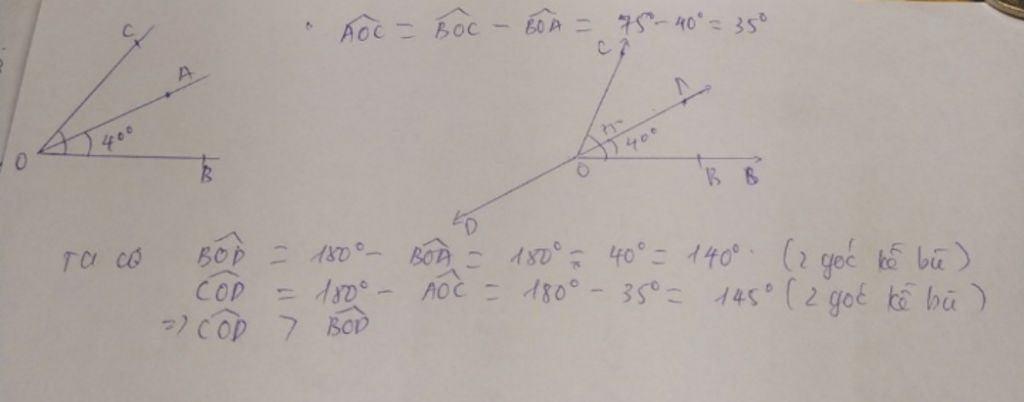 AOC = BOC - BOA = 75° - 40° = 35°
C
A
40°
O
B
C
A
75°
40°
O
B
B
D
Ta có BOD = 180° - BOA = 180° = 40° = 140°. (2 góc kề bù)
COD = 180° - AOC = 180° - 35° = 145° (2 góc kề bù)
=> COD > BOD